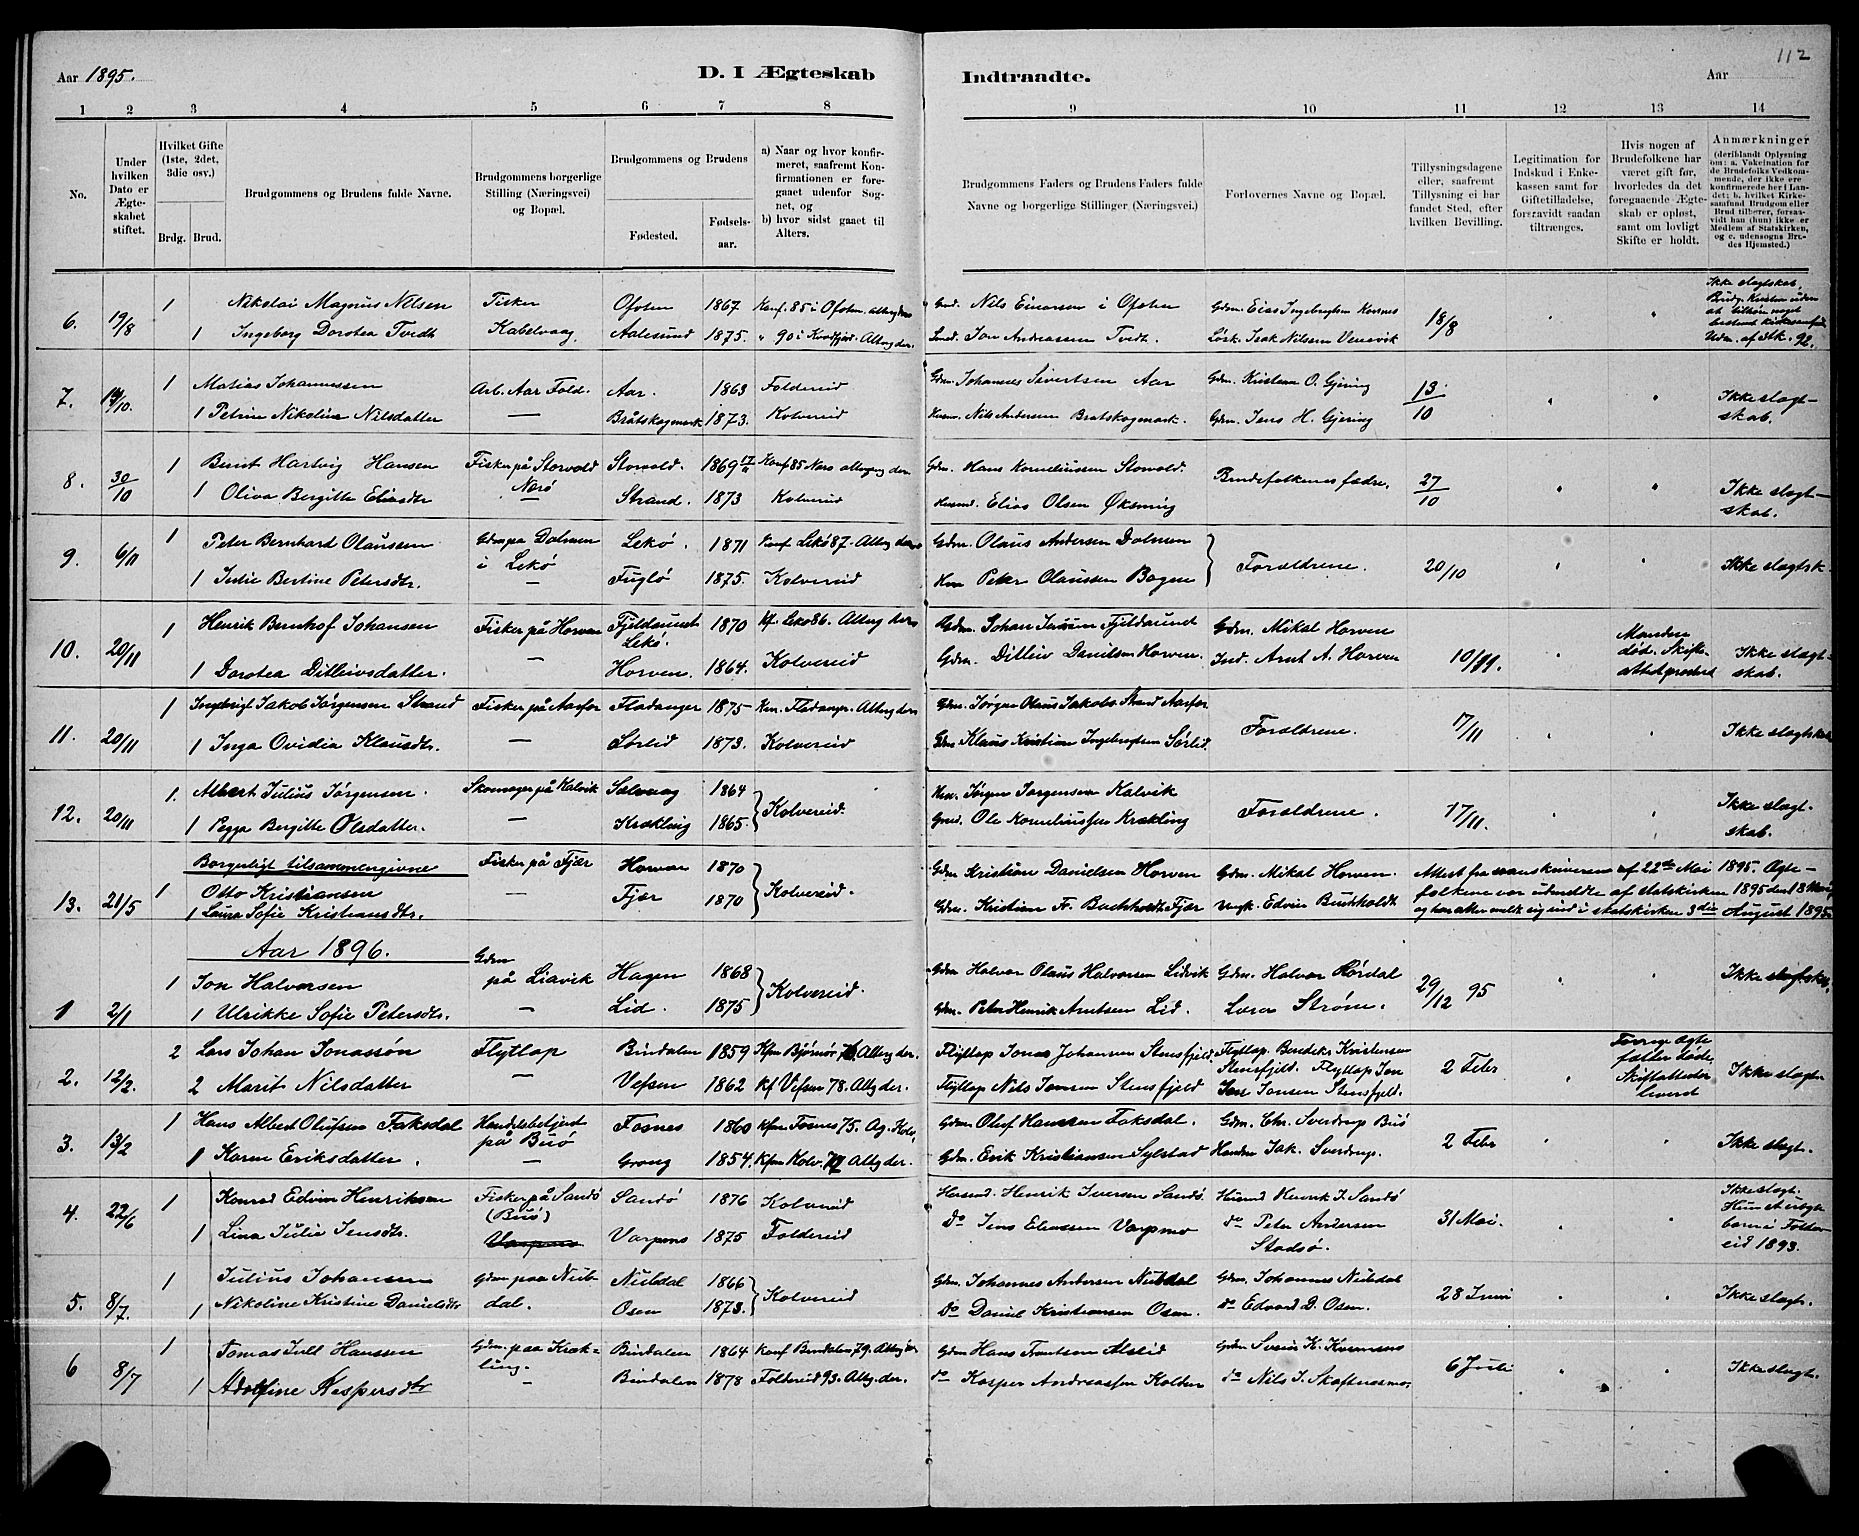 112
Aar 1895. D. I Ægteskab Indtraadte. Aar
1 2 3 4 5 6 7 8 9 10 11 12 13 14
No.
Under hvilken Dato er Ægteskabet stiftet.
Hvilket Gifte (1ste, 2det, 3die osv.)
Brdg. Brud.
Brudgommens og Brudens fulde Navne.
Brudgommens borgerlige Stilling (Næringsvei) og Bopæl.
Brudgommens og Brudens
Fødested. Fødselsaar.
a) Naar og hvor konfirmeret, saafremt Konfirmationen er foregaaet udenfor Sognet, og
b) hvor sidst gaaet til Alters.
Brudgommens Faders og Brudens Faders fulde Navne og borgerlige Stillinger (Næringsvei.)
Forlovernes Navne og Bopæl.
Tillysningsdagene eller, saafremt Tillysning ei har fundet Sted, efter hvilken Bevilling.
Legitimation for Indskud i Enkekassen samt for Giftetilladelse, forsaavidt saadan tiltrænges.
Hvis nogen af Brudefolkene har været gift før, hvorledes da det foregaaende Ægteskab er opløst, samt om lovligt Skifte er holdt.
Anmærkninger
(deriblandt Oplysning om: a. Vakcination for de Brudefolks Vedkommende, der ikke ere konfirmerede her i Landet; b. hvilket Kirkesamfund Brudgom eller Brud tilhører, forsaavidt han (hun) ikke er Medlem af Statskirken, og c. udensogns Brudes Hjemsted.)
6. 19/8 1 Nikolai Magnus Nilsen Fisker Ofoten 1867 Konf. 85 i Ofoten. altergders Gmd. Nils Einersen i Ofoten Gdm. Eias Ingebrigtsen 18/8 Ikke slagtskab.
1 Ingeborg Dorotea Tvedt Kabelvaag. Aalesund 1875. " 90 i Kvedfjord. Altrg der. Jon Andreassen Tvedt. Isak Nilssen
7. 19/10. 1 Matias Johannessen Arb. Aar Fold. Aar. 1863 Foldereid Gdm. Johannes Sivertsen Aar Gdm. Kristian O. Gjering 13/10 Ikke slagtskab.
1 Petrine Nikoline Nilsdatter — Bråtskogmark 1873. Kolvereid Husm. Nils Andersen Bratskogmark. Gdm. Jens H. Gjering
8. 30/10 1 Bernt Hartvig Hansen Fisker på Storvold Nærö Storvold. 1869 Konf 85 Nærö altergang der Gdm. Hans Korneliussen Storvold. Brudefolkenes fædre. 27/10 Ikke slagtskab.
1 Oliva Bergitte Eliasdtr — Strand. 1873 Kolvereid Husmd. Elias Olsen Øksning
9. 6/11 1 Peter Bernhard Olaussen Gdm paa Dolmen i Lekö Lekö. 1871 Konf Lekö 87. Altrg der Gdm. Olaus Andersen Dolmen Forældrene. 20/10 Ikke slagtsk.
1 Julie Bertine Petersdtr. — Fuglö 1875. Kolvereid Hm Peter Olaussen Bogen
10. 20/11 1 Henrik Bernhof Johansen Fisker på Horven Fjeldsundet Lekö. 1870 Kf. Lekö 86. Altrg der Gdm. Johan Jensen Fjeldsund Gdm. Mikal Horven 10/11. Manden död. Skifteattest produceret Ikke slagtskab.
1 Dorotea Ditlevsdatter. — Horven. 1864. Kolvereid Gdm. Ditlev Danielsen Horven. Ind. Arnt A. Horven
11. 20/11 1 Ingebrigt Jakob Jørgensen Strand Fisker på Aarfor Fladanger 1875 Kon. Fladanger. Altrg der Gdm. Jørgen Olaus Jakobs. Strand Aarfor Forældrene. 17/11 Ikke slagtskab
1 Inga Ovidia Klausdtr. — Sørlid 1873. Kolvereid Gdm Klaus Kristian Ingebrigtsen Sørlid.
12. 20/11 1. Albert Julius Jørgensen. Skomager på Kalvik Solvaag 1864 Kolvereid. Hm. Jørgen Jørgensen Kalvik Forældrene. 17/11. Ikke slagtskab.
1 Pegga Bergitte Olsdatter. — Krækling 1865 Gmd. Ole Korneliussen Krækling
Borgerligt tilsammengivne
13. 21/5 1 Otto Kristiansen Fisker på Fjær Horven 1870 Kolvereid. Gdm Kristian Danielsen Horven Gdm. Mikal Horven. Attest fra sorenskriveren af 22de Mai 1895. Ægtefolkene var udmeldte af statskirken 1895 den 18
1 Laura Sofie Kristiansdtr. — Fjær 1870 Gdm. Kristian Fr. Buchholdt Fjær Ungk. Edvin Buchholdt og har atter meldt sig ind i statskirken 3die August 1895.
Aar 1896.
1 2/1 1 Jon Halvorsen Gdm på Liavik Hagen 1868 Kolvereid. Gdm Halvor Olaus Halvorsen Lidvik Gdm. Halvor Rördal 29/12 95 Ikke slagtskab.
1 Ulrikke Sofie Petersdtr. — Lid. 1875 Gdm. Peter Henrik Arntsen Lid. Ström.
2. 12/2. 2 Lars Johan Jonassön Flytlap Bindalen 1859 Kfm Bjørnør 76. Altrg der. Flytlap Jonas Johansen Stensfjeld Flytlap. Bendiks Kristensen Stensfjeld. Flytlap Jon 2 Febr Forrige ægtefæller döde. Skifteattester leveret Ikke slagt
2 Marit Nilsdatter — Vefsen 1862 Kf Vefsen 78. Altg der. Flytlap Nils Jonsen Stensfjeld Jonsen Stensfjeld.
3. 13/2 1 Hans Albert Olufsen Faksdal Handelsbetjent på Buö Fosnes 1860 Kfm Fosnes 75. Ag. Kolv. Gdm. Oluf Hanssen Faksdal. Gdm. Chr. Sverdrup Buö 2 Febr Ikke slagt.
1 Karen Eriksdatter. — Grong 1854. Kfm Kolv. 72 Altg der. Gdm. Erik Kristiansen Sylstad Handm Jak. Sverdrup.
4. 22/6 1 Konrad Edvin Henriksen Fisker på Sandö (Buö) Sandö 1876 Kolvereid Husmd. Henrik Iversen Sandö. Husmd Henrik I. Sandö 31 Mai. Ikke slagt. Hun et uægte barn i Foldereid 1893.
1 Lina Julie Jensdtr. Varpmo 1875 Foldereid do Jens Eliassen Varpmo do Peter Andersen Stadsö.
5. 8/7. 1 Julius Johansen Gdm paa Nubdal. Nubdal 1866 Kolvereid Gdm. Johannes Andersen Nubdal Gdm. Johannes Nubdal 28 Juni Ikke slagt.
1 Nikoline Kristine Danielsdtr Osen 1873. do Daniel Kristiansen Osen. do Edvard D. Osen.
6 8/7 1 Tomas Hanssen Gdm. paa Krækling. Bindalen 1864 Konf Bindalen 79. Altg Gdm Hans Tomtsen Gdm Svein K. 6 Juli Ikke slagt.
1 Adolfine Kaspersdtr — Bindalen 1878 Foldereid 93. Altg. der. do Kasper Andreassen Kolden do Nils J. Skaftnesmo.